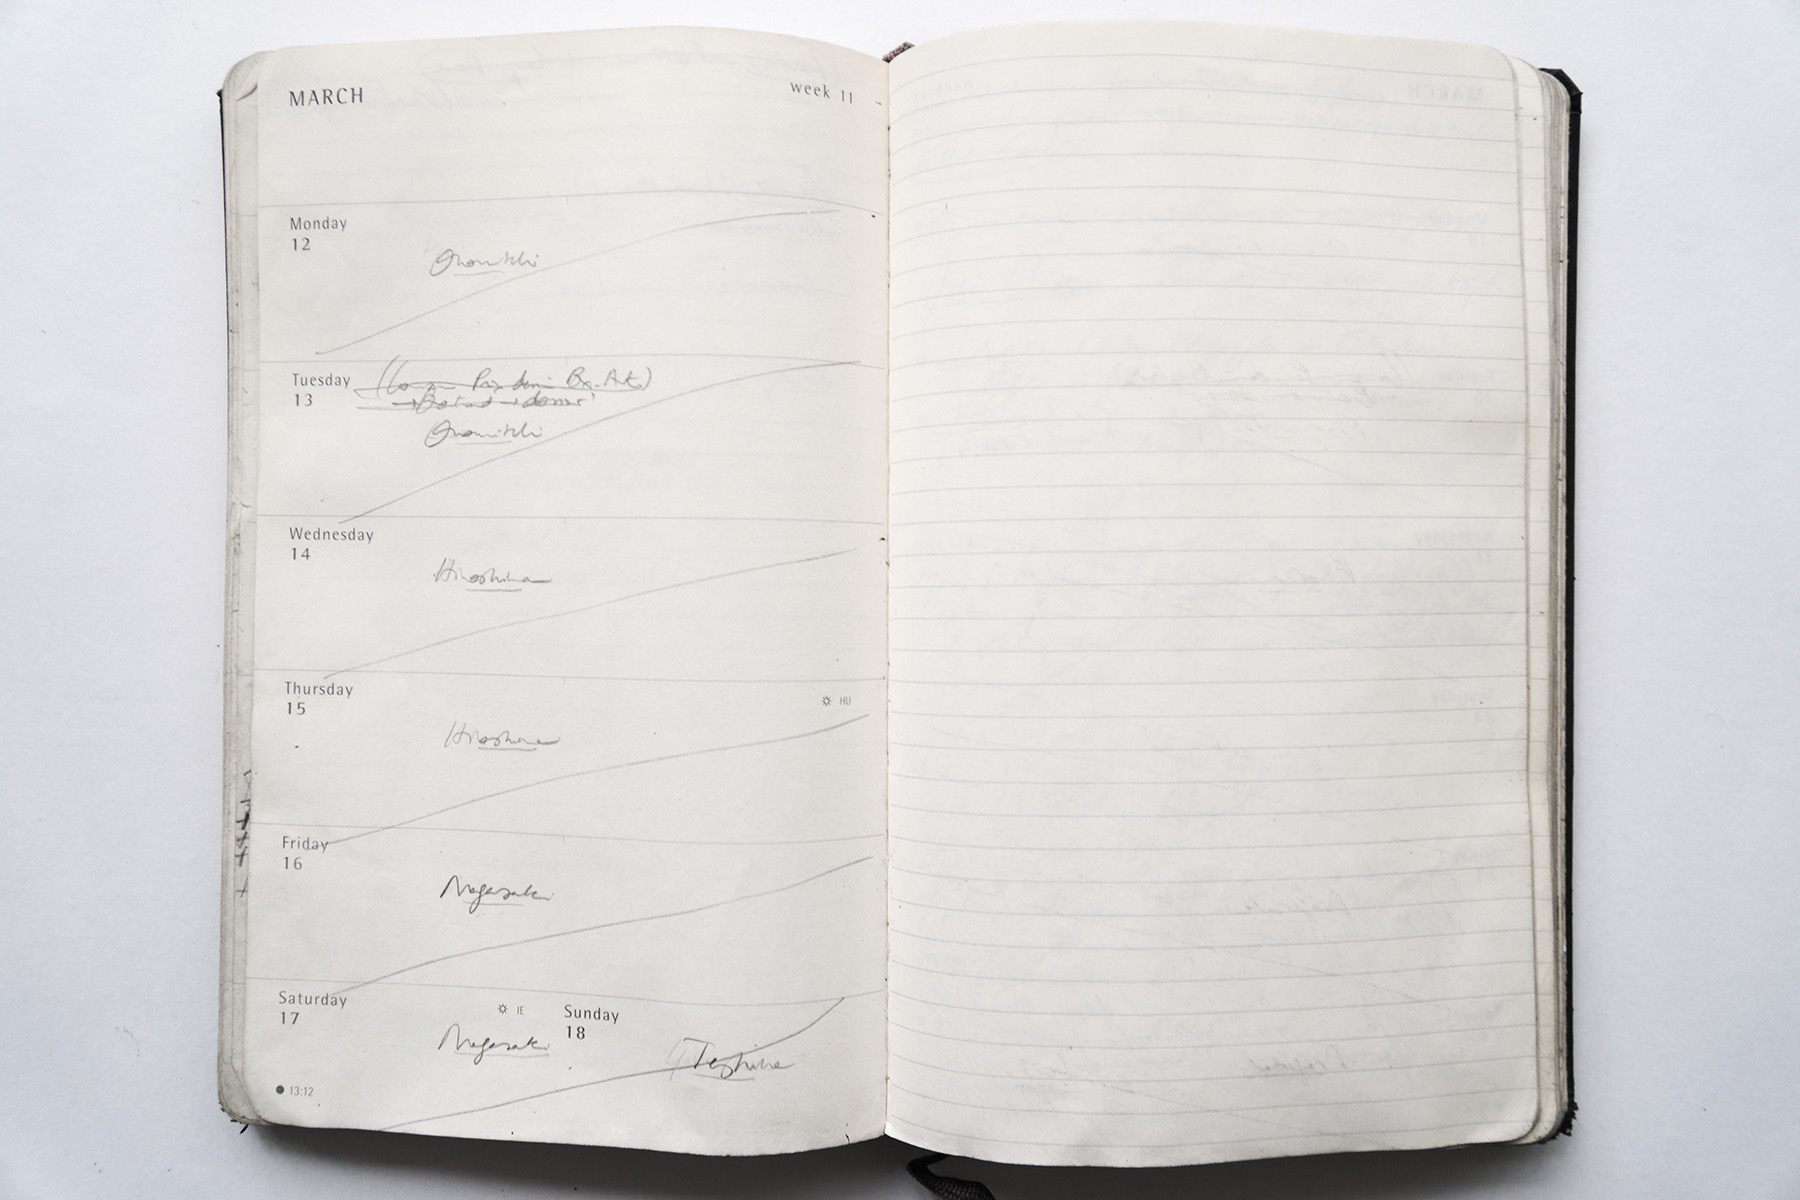 MARCH
week 11
Monday
12
Onomichi
Tuesday
13
Onomichi
Wednesday
14
Hiroshima
Thursday
15
HU
Hiroshima
Friday
16
Nagasaki
Saturday
17
IE
Nagasaki
Sunday
18
Teshima
13:12